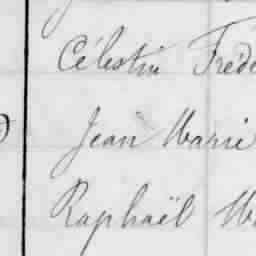 Célestin Fréde
Jean Marie
Raphaël Ma